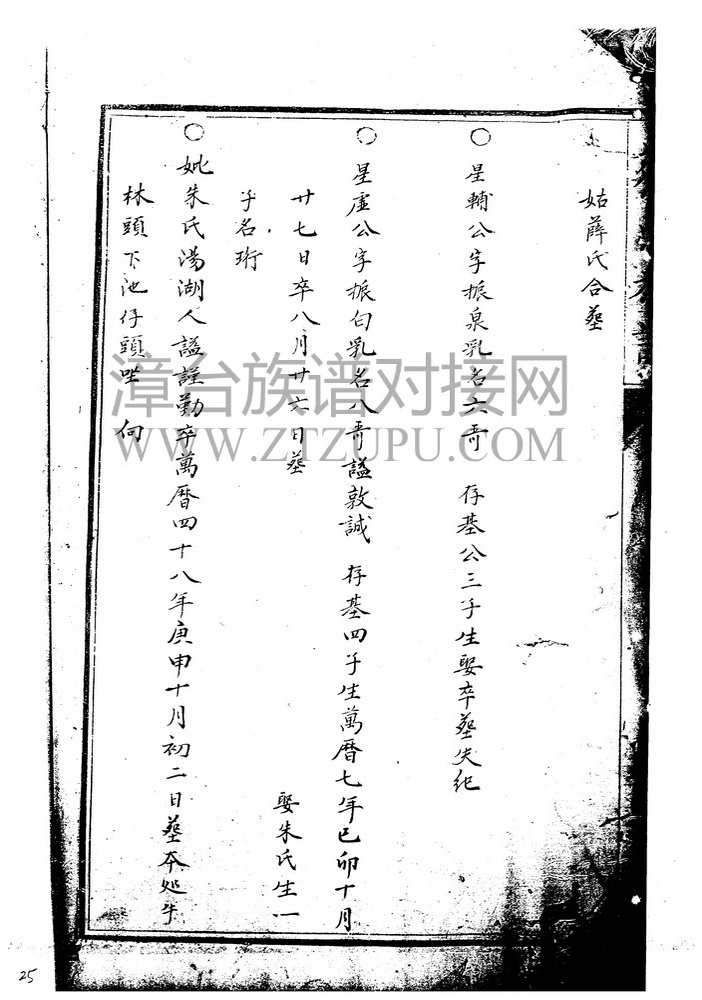 姑薛氏合墓
○星輔公字振泉乳名六哥 存基公三子生娶卒塟失紀
○星虛公字振白乳名八哥謚敦誠 存基四子生萬曆七年己卯十月
廿七日卒八月廿六日墓 娶朱氏生一
子名珩
○妣朱氏湯湖人謚謹勤卒萬曆四十八年庚申十月初二日塟本処牛
林頭下池仔頭坐 向
漳台族谱对接网
WWW.ZTZUPU.COM
25